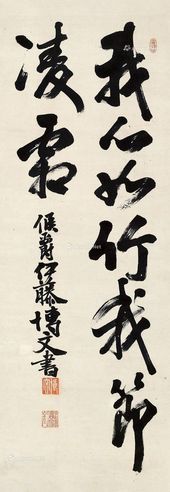 我心如竹我節
凌霜
侯爵伊藤博文書